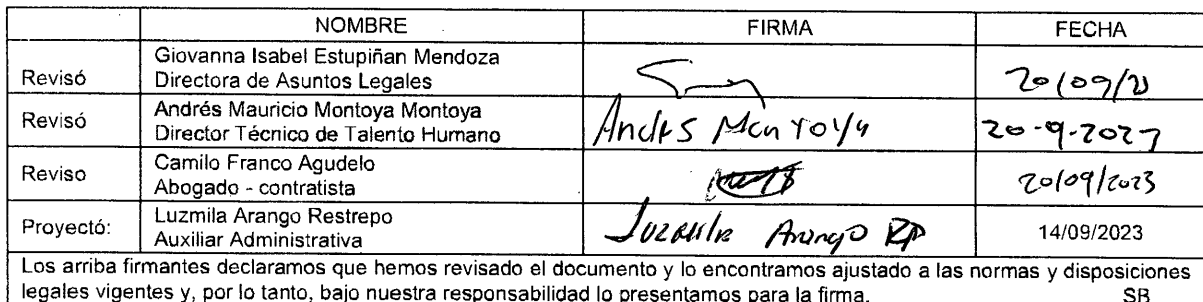 NOMBRE FIRMA FECHA
Giovanna Isabel Estupiñan Mendoza
Revisó Directora de Asuntos Legales 20/09/23
Andrés Mauricio Montoya Montoya
Revisó Director Técnico de Talento Humano Andrés Montoya 20-9-2023
Camilo Franco Agudelo
Reviso Abogado - contratista 20/09/2023
Luzmila Arango Restrepo
Proyectó: Auxiliar Administrativa Luzmila Arango R 14/09/2023
Los arriba firmantes declaramos que hemos revisado el documento y lo encontramos ajustado a las normas y disposiciones
legales vigentes y, por lo tanto, bajo nuestra responsabilidad lo presentamos para la firma. SB